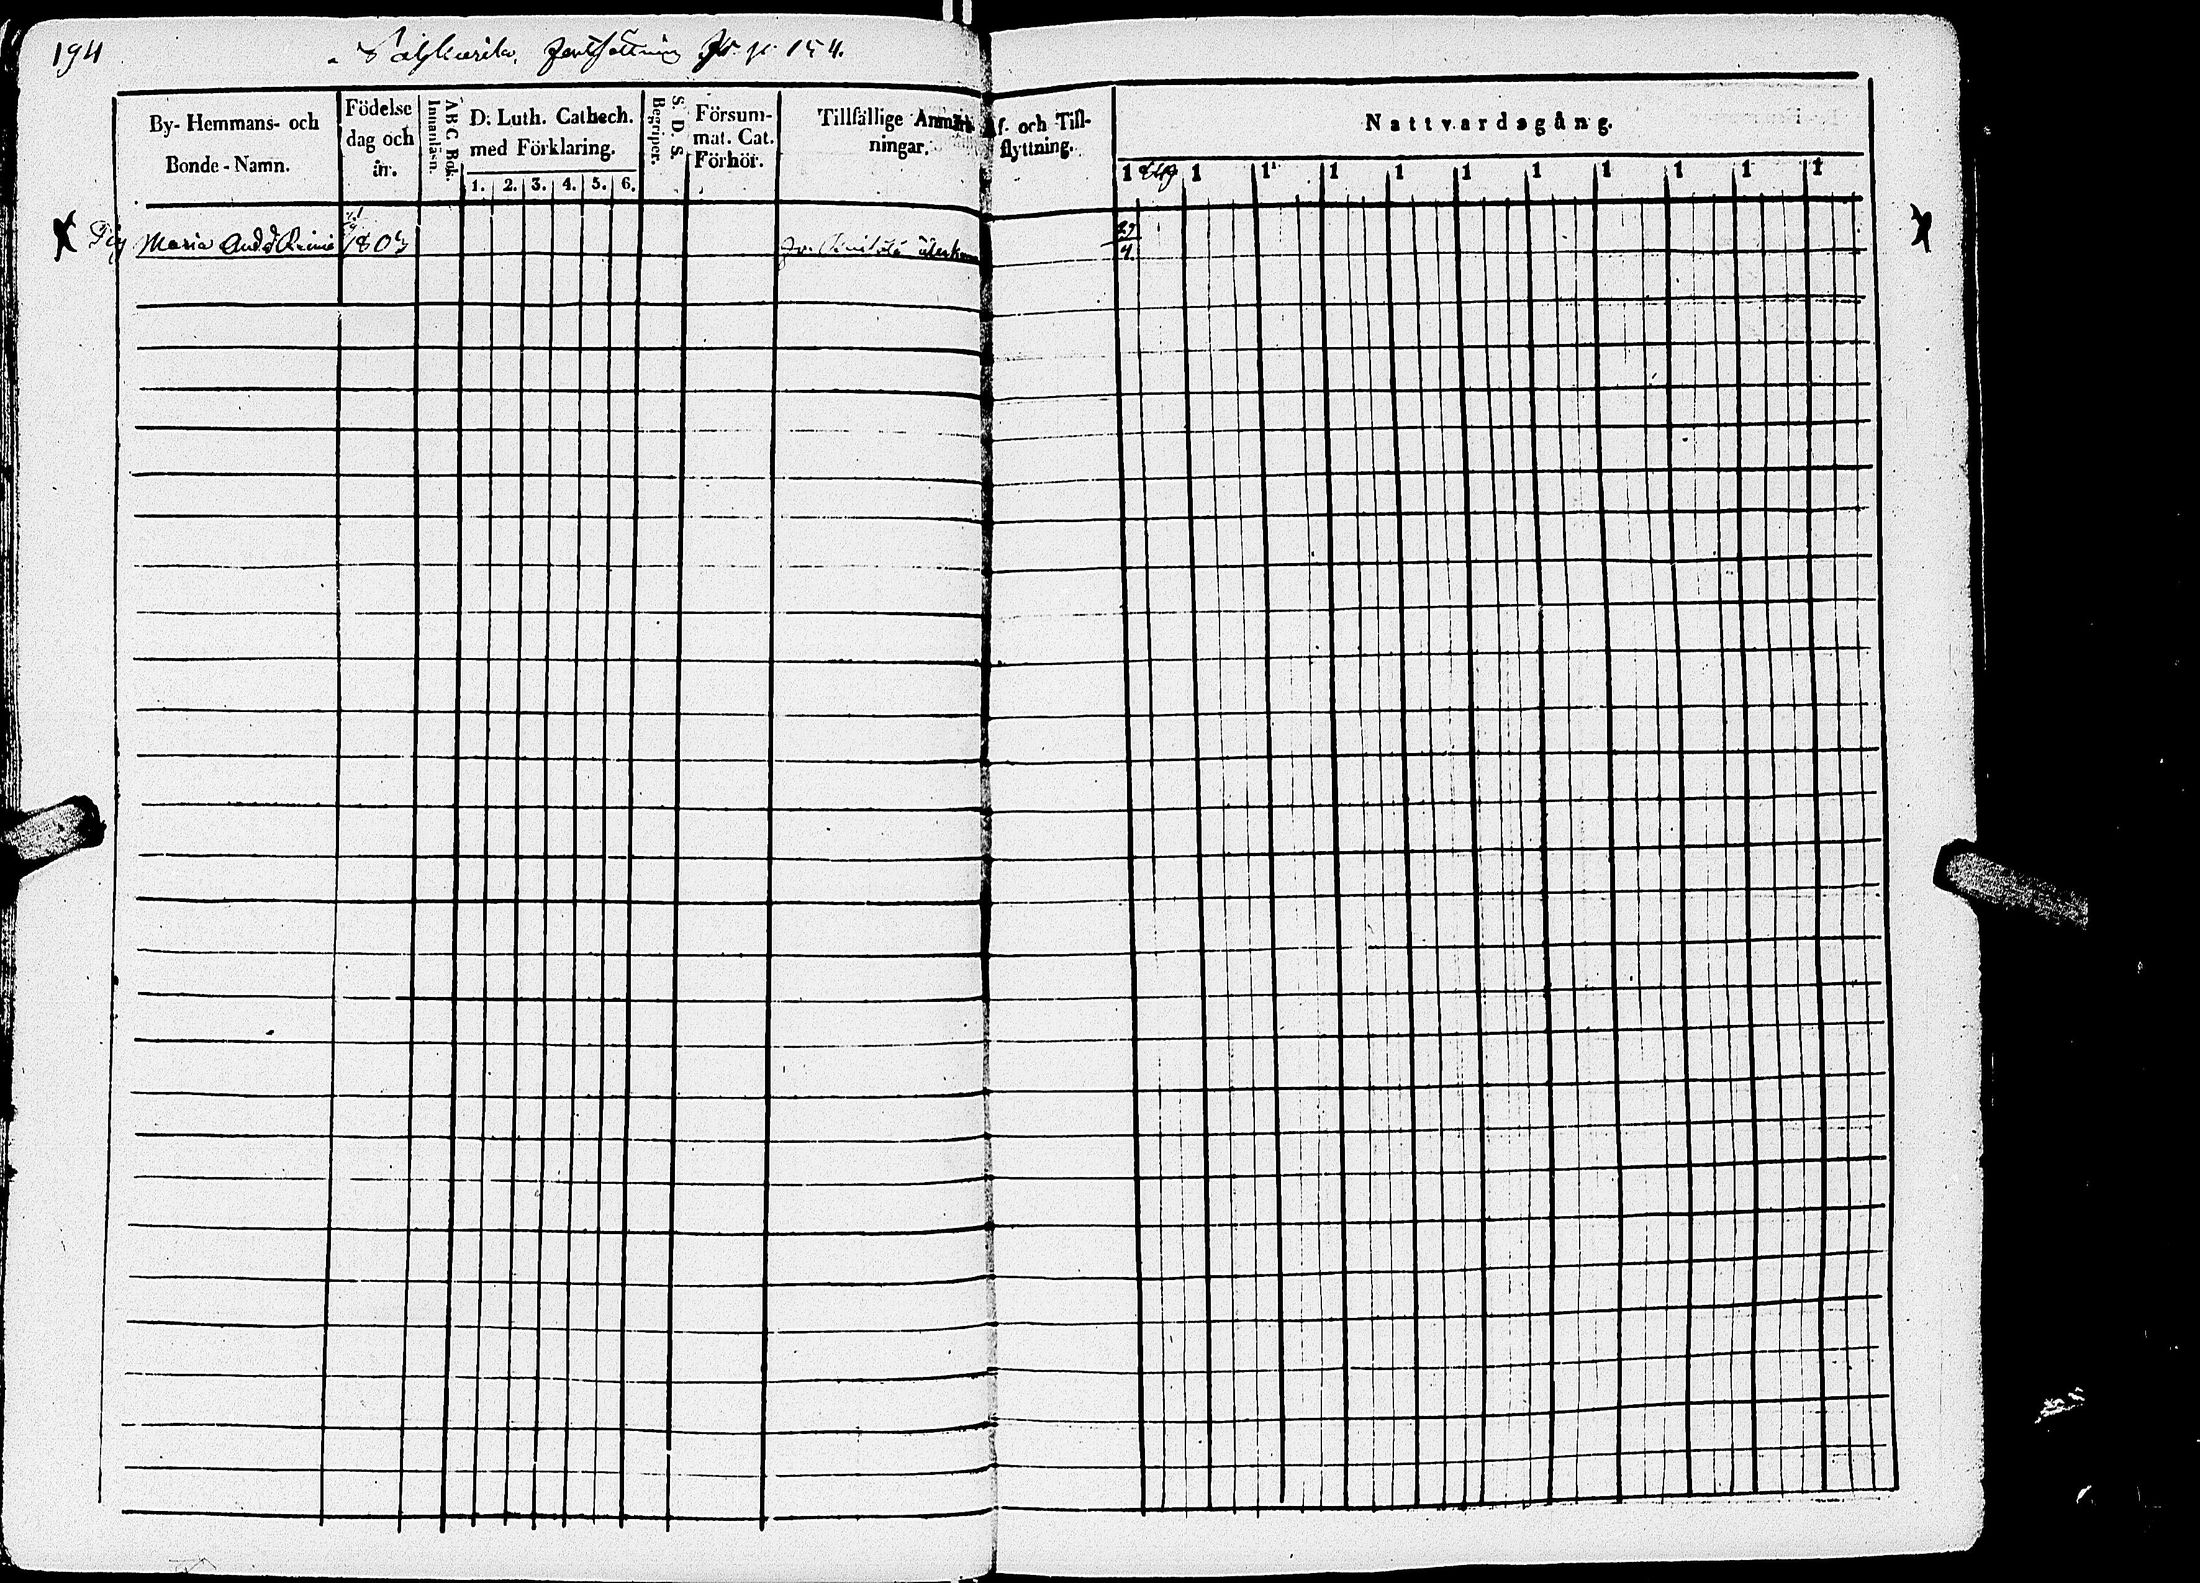 194
fortsättning fr. p. 154.
By- Hemmans- och Bonde-Namn.
Födelse dag och år.
A B C Bok. Innanläsn.
D. Luth. Cathech. med Förklaring.
1. 2. 3. 4. 5. 6.
S. D. S. Begriper.
Försummat. Cat. Förhör.
Tillfällige Anmärkningar.
Af- och Tillflyttning.
Nattvardsgång.
1 1 1 1 1 1 1 1 1 1 1
Pig Maria And.d 1803
29
4.